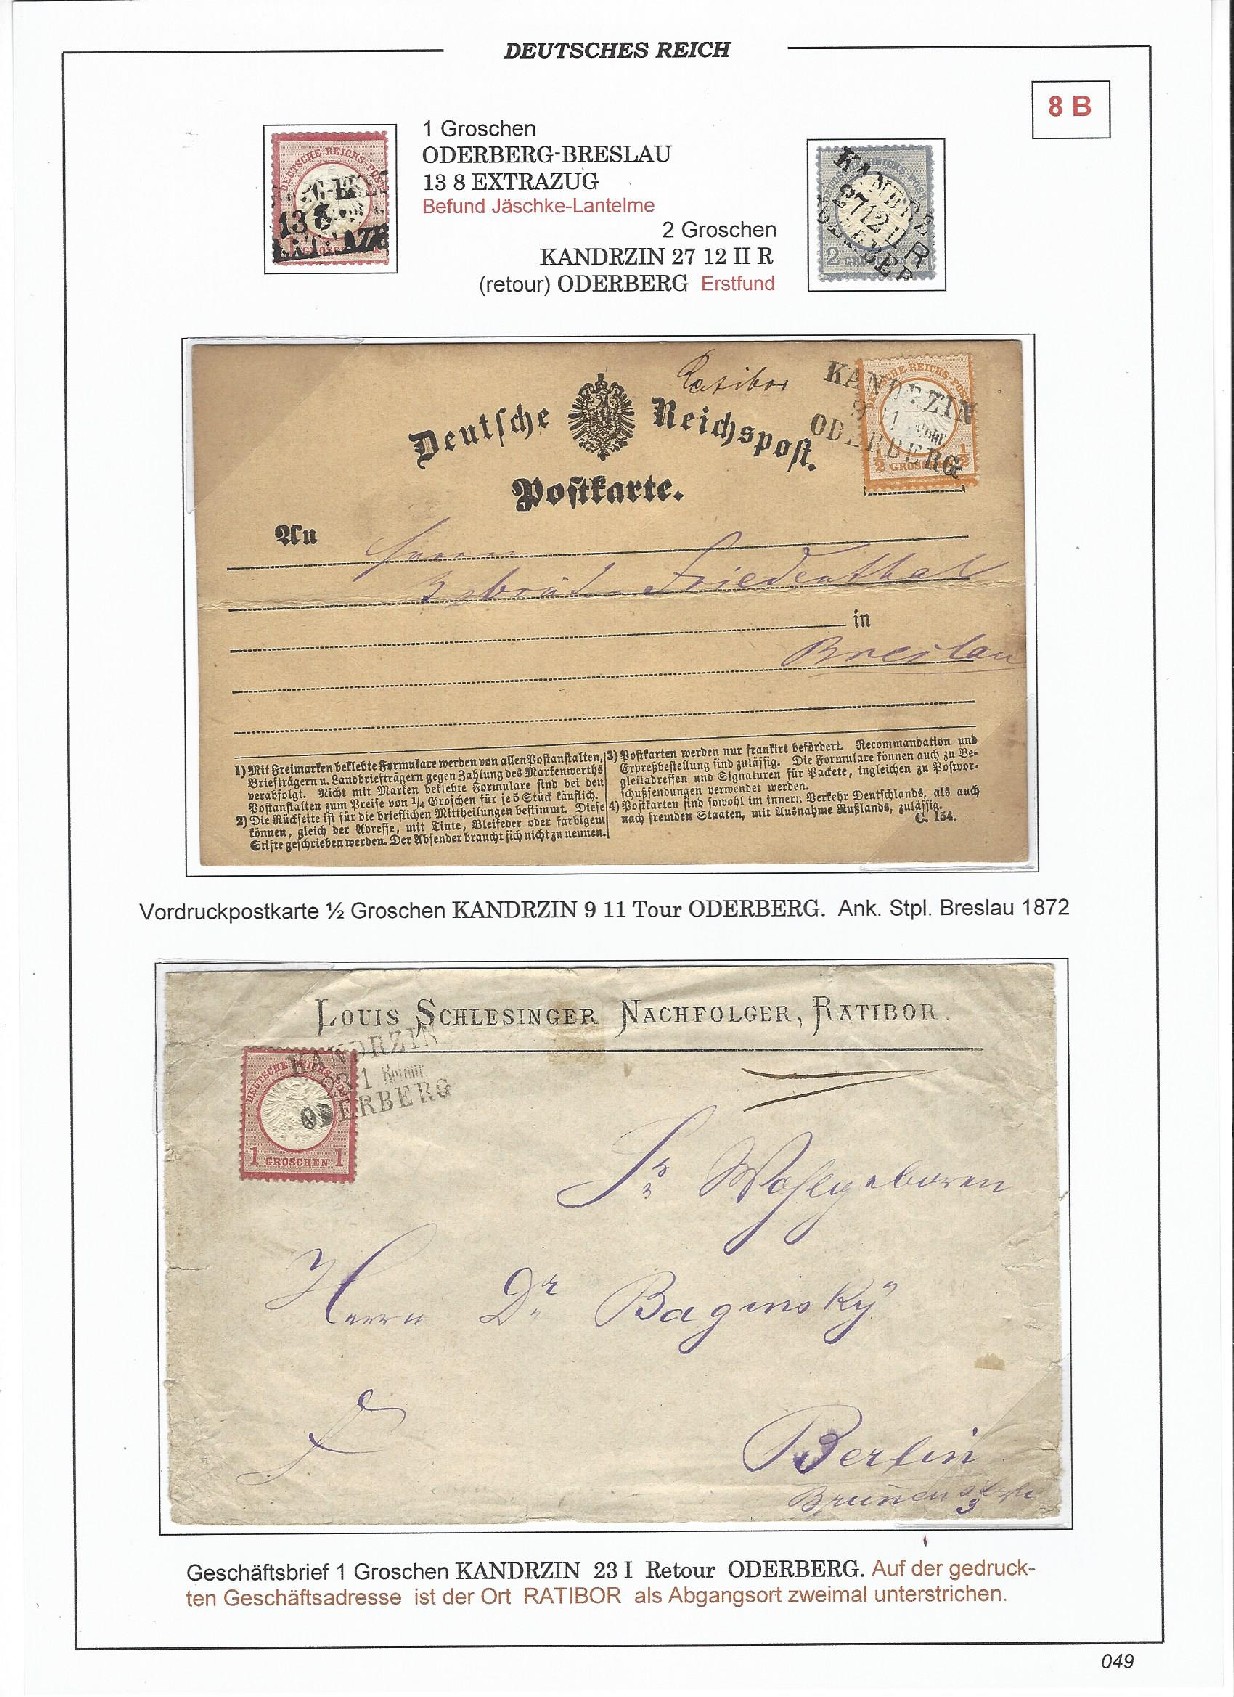 DEUTSCHES REICH
8 B
1 Groschen
ODERBERG-BRESLAU
13 8 EXTRAZUG
Befund Jäschke-Lantelme
2 Groschen
KANDRZIN 27 12 II R
(retour) ODERBERG Erstfund
DEUTSCHE REICHS-POST
13 8
KANDRZ
27 12 II R
ODERBER
2
Ratibor
Deutsche Reichspost.
Postkarte.
KANDRZIN
9 1
ODERBERG
½ GROSCHEN ½
An
Herrn
Gebrüd. Friedenthal
in
Breslau
1) Mit Freimarken beklebte Formulare werden von allen Postanstalten,
Briefträgern u. Landbriefträgern gegen Zahlung des Markenwerths
verabfolgt. Nicht mit Marken beklebte Formulare sind bei den
Postanstalten zum Preise von ¼ Groschen für je 5 Stück käuflich.
2) Die Rückseite ist für die brieflichen Mittheilungen bestimmt. Diese
können, gleich der Adresse, mit Tinte, Bleifeder oder farbigem
Stifte geschrieben werden. Der Absender braucht sich nicht zu nennen.
3) Postkarten werden nur frankirt befördert. Recommandation und
Expreßbestellung sind zulässig. Die Formulare können auch zu Be-
gleitadressen und Signaturen für Packete, ingleichen zu Postvor-
schußsendungen verwendet werden.
4) Postkarten sind sowohl im innern Verkehr Deutschlands, als auch
nach fremden Staaten, mit Ausnahme Rußlands, zulässig.
C. 154.
Vordruckpostkarte ½ Groschen KANDRZIN 9 11 Tour ODERBERG. Ank. Stpl. Breslau 1872
LOUIS SCHLESINGER NACHFOLGER, RATIBOR.
KANDRZIN
23 1 Retour
ODERBERG
1 GROSCHEN 1
Sr Wohlgeboren
Herrn Dr. Baginsky
Berlin
3
Geschäftsbrief 1 Groschen KANDRZIN 23 I Retour ODERBERG. Auf der gedruck-
ten Geschäftsadresse ist der Ort RATIBOR als Abgangsort zweimal unterstrichen.
049